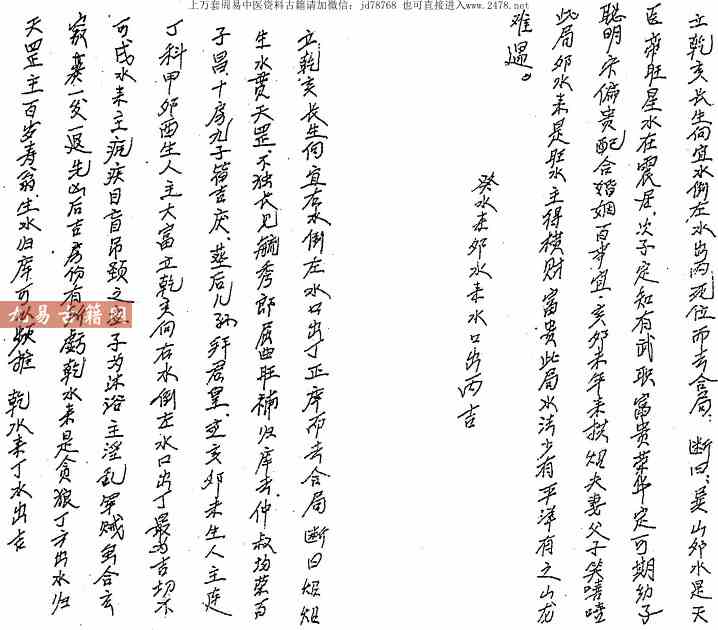 上万套周易中医资料古籍请加微信：jd78768 也可直接进入www.2478.net
立乾亥长生向宜水倒左水出丙死位而去合局：断曰：巽山卯水是天
臣帝旺星水在震居，次子定知有武职富贵荣华定可期幼子
聪明宋偏贵配合婚姻百事宜·亥卯未年来拱烜夫妻父子笑嘻哇
此局卯水来是旺水主得横财富贵此局水法少有平洋有之山龙
难遇。
癸水来卯水来水口出丙吉
立乾亥长生向宜右水倒左水口出丁正库而去合局断曰烜烜
生水贯天罡不独长儿毓秀郎辰巫旺補归库去仲叔均荣百
子昌十房九子皆吉庆蒸后儿孙拜君皇立亥卯未生人主连
丁科甲卯酉生人主大富立乾亥向右水倒左水口出丁最为吉切不
可戌水来主疯疾目盲吊颈之 子为沐浴主淫乱军贼争合玄
寂寞一发一退先凶后吉房份有 虧乾水来是贪狼丁方出水归
天罡主百岁寿翁生水归库可以类推 乾水来丁水出吉
九易古籍網